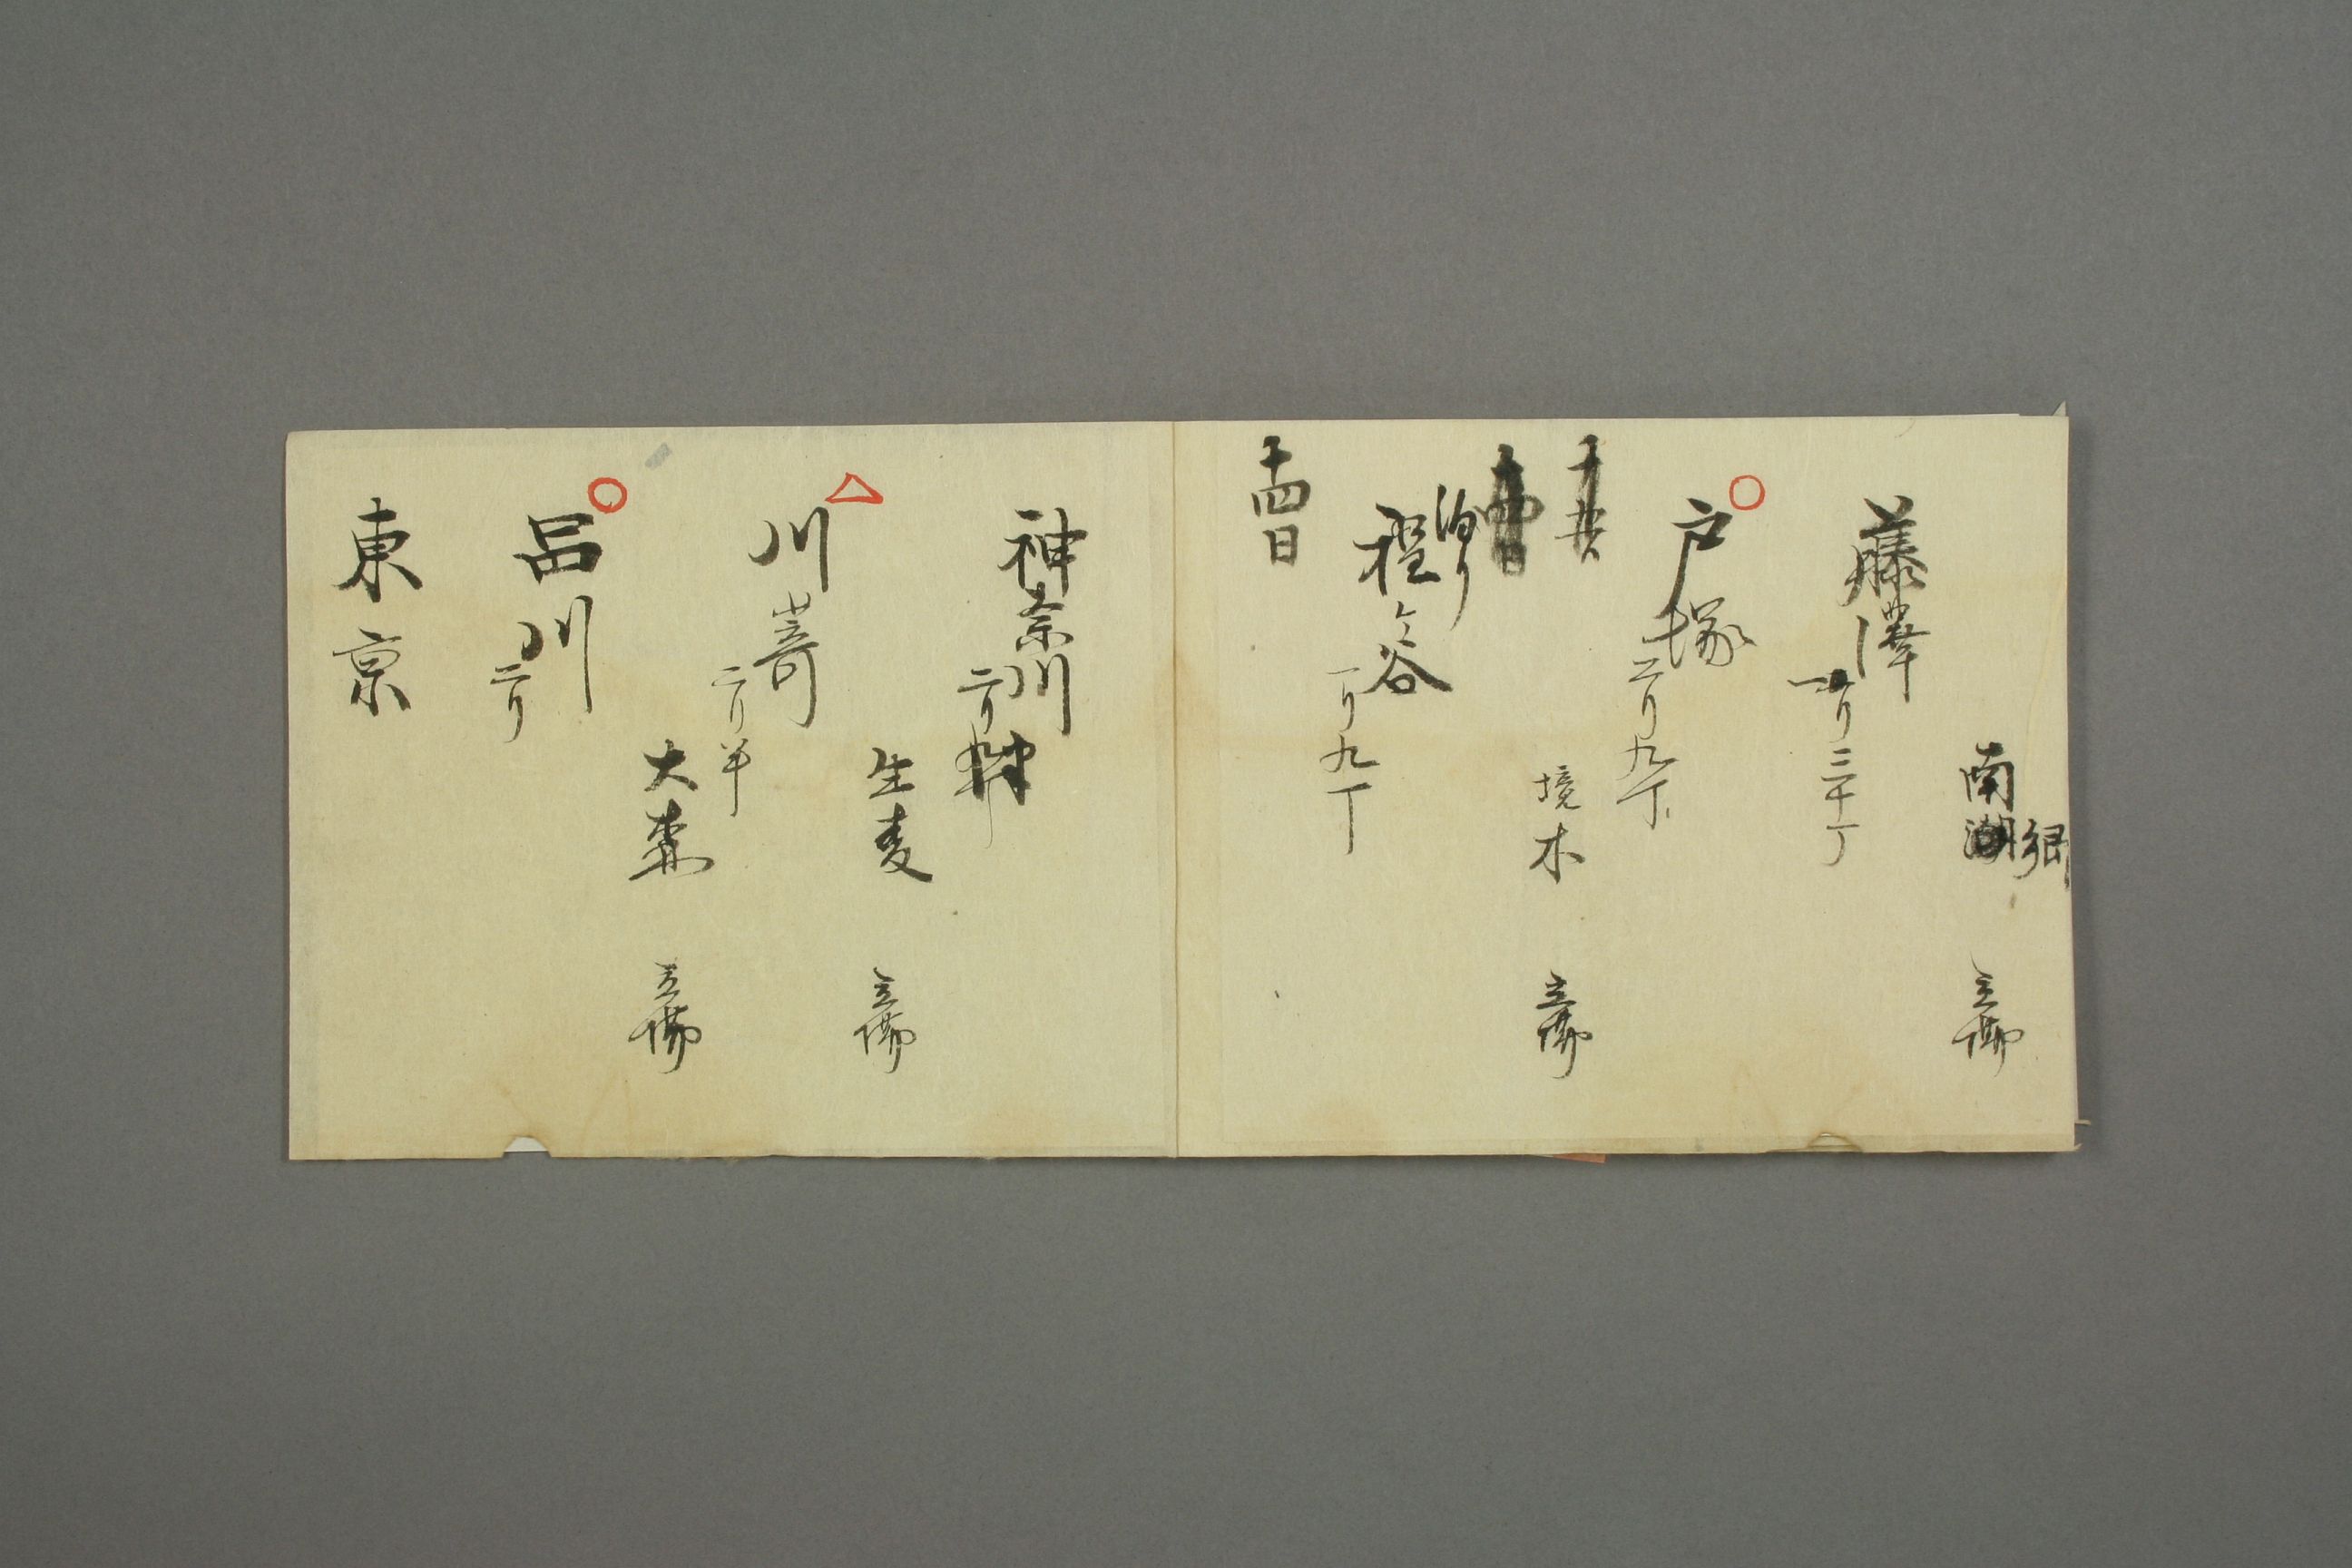 南湖郷
立場
藤澤
一リ三十丁
○
戸塚
二リ九丁
境木
立場
泊り
程ヶ谷
一リ九丁
十四日
神奈川
二リ半
生麦
立場
△
川嵜
二リ半
大森
立場
○
品川
二リ
東京